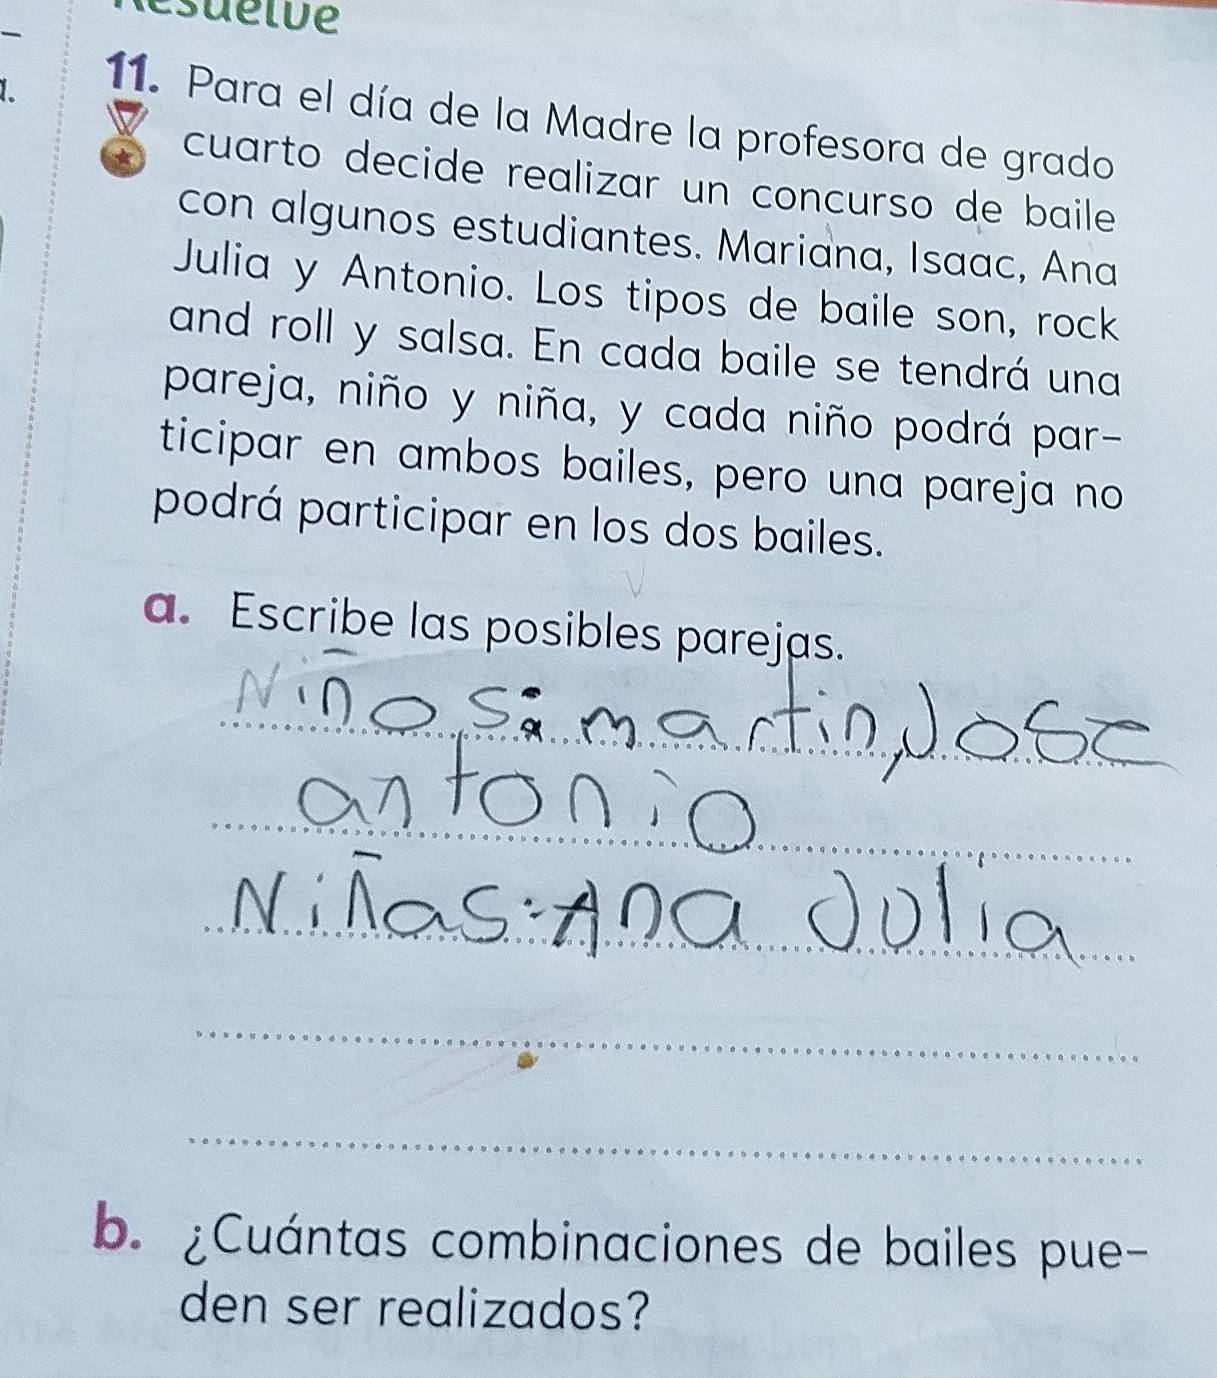 Resuelve
11. Para el día de la Madre la profesora de grado
cuarto decide realizar un concurso de baile
con algunos estudiantes. Mariana, Isaac, Ana
Julia y Antonio. Los tipos de baile son, rock
and roll y salsa. En cada baile se tendrá una
pareja, niño y niña, y cada niño podrá par-
ticipar en ambos bailes, pero una pareja no
podrá participar en los dos bailes.
a. Escribe las posibles parejas.
Niños: martin, Jose
antonio
Niñas: Ana Julia
b. ¿Cuántas combinaciones de bailes pue-
den ser realizados?